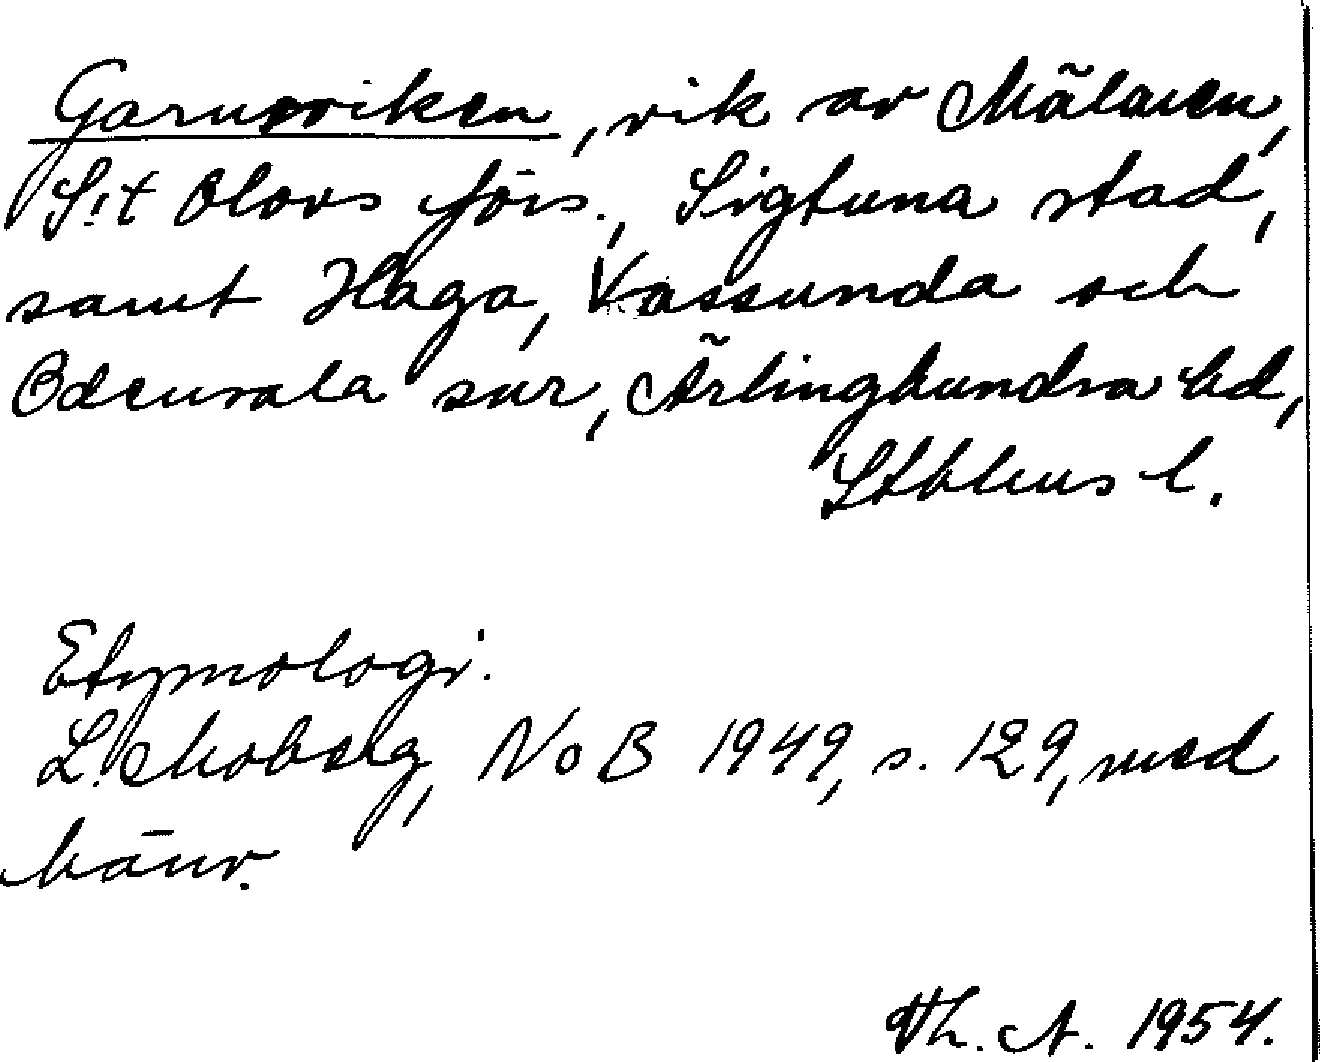 Garnsviken, vik av Mälaren,
S:t Olovs förs., Sigtuna stad,
samt Haga, Vassunda och
Odensala snr, Ärlinghundra hd,
Sthlms l.
Etymologi.
L. Moberg, NoB 1949, s. 129, med
hänv.
Th. A. 1954.